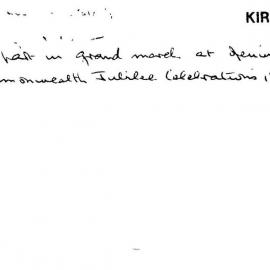 KIR
part in grand march at
mmonwealth Jubilee Celebrations 1